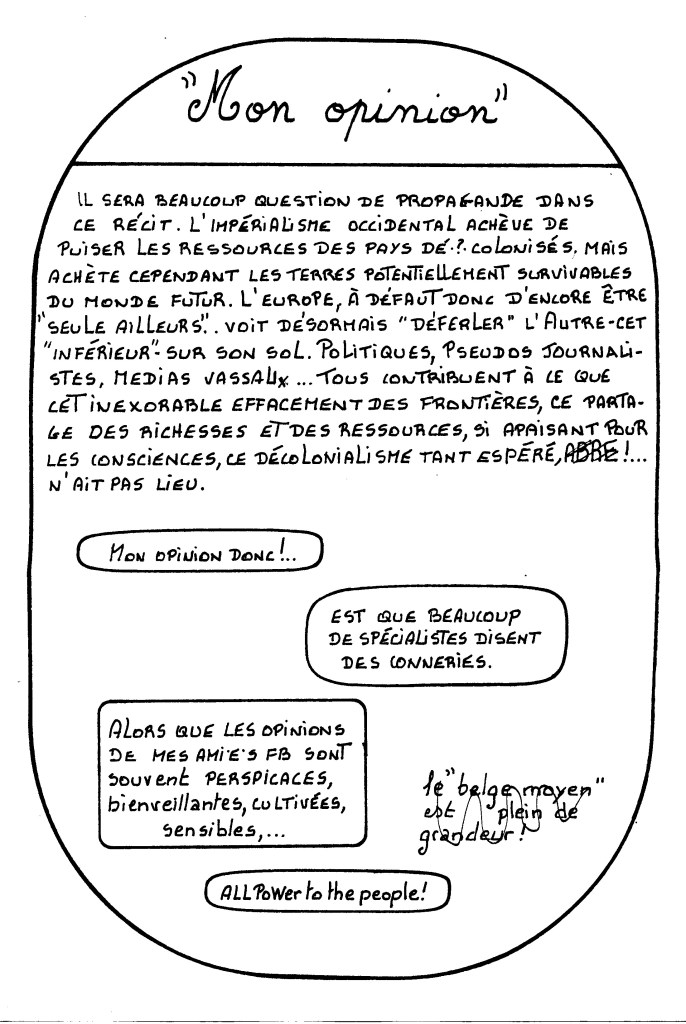 "Mon opinion"
IL SERA BEAUCOUP QUESTION DE PROPAGANDE DANS
CE RÉCIT. L'IMPÉRIALISME OCCIDENTAL ACHÈVE DE
PUISER LES RESSOURCES DES PAYS DÉ·?·COLONISÉS, MAIS
ACHÈTE CEPENDANT LES TERRES POTENTIELLEMENT SURVIVABLES
DU MONDE FUTUR. L'EUROPE, À DÉFAUT DONC D'ENCORE ÊTRE
"SEULE AILLEURS". VOIT DÉSORMAIS "DÉFERLER" L'AUTRE-CET
"INFÉRIEUR"- SUR SON SOL. POLITIQUES, PSEUDOS JOURNALI-
STES, MEDIAS VASSAUX... TOUS CONTRIBUENT À CE QUE
CET INEXORABLE EFFACEMENT DES FRONTIÈRES, CE PARTA-
GE DES RICHESSES ET DES RESSOURCES, SI APAISANT POUR
LES CONSCIENCES, CE DÉCOLONIALISME TANT ESPÉRÉ, !...
N'AIT PAS LIEU.
MON OPINION DONC!..
EST QUE BEAUCOUP
DE SPÉCIALISTES DISENT
DES CONNERIES.
ALORS QUE LES OPINIONS
DE MES AMI·E·S FB SONT
souvent PERSPICACES,
bienveillantes, CULTIVÉES,
sensibles,...
le "belge moyen"
est plein de
grandeur!
ALL PoWer to the people!